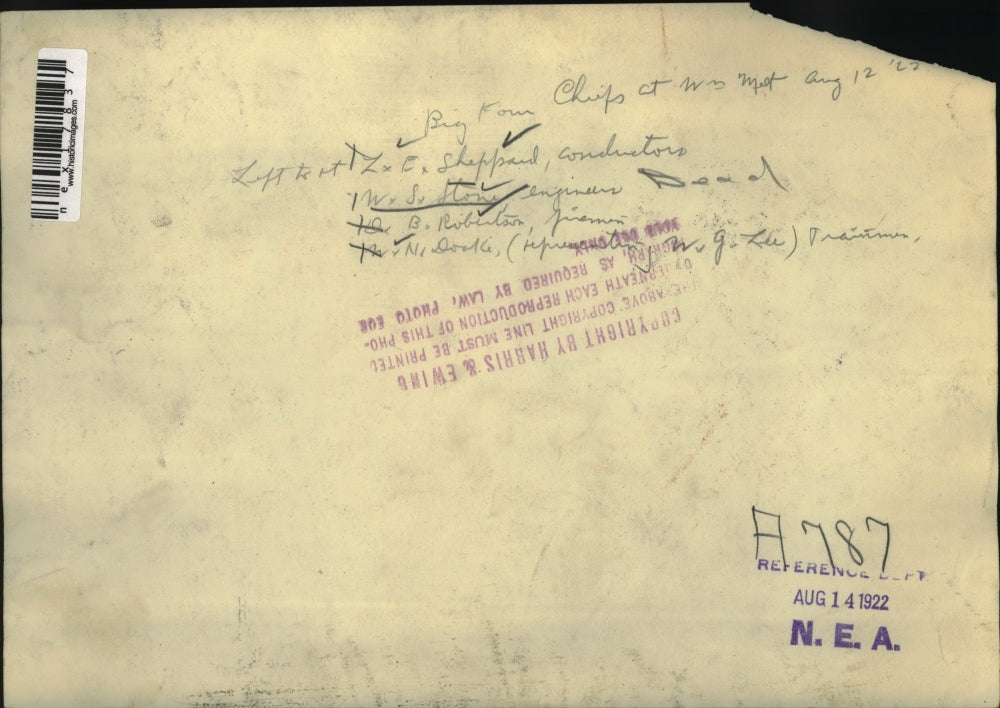 Big Four Chiefs at W H Met Aug 12 '22
Left to rt L. E. Sheppard, conductors
W. S. Stone, engineers Dead
B. Robertson, firemen
W. N. Doak, (representing W. G. Lee) Trainmen.
COPYRIGHT BY HARRIS & EWING
THE ABOVE COPYRIGHT LINE MUST BE PRINTED
UNDERNEATH EACH REPRODUCTION OF THIS PHO-
TOGRAPH, AS REQUIRED BY LAW. PHOTO FOR
YOUR USE ONLY
nex17837
www.historicimages.com
A 787
REFERENCE DEPT
AUG 14 1922
N. E. A.